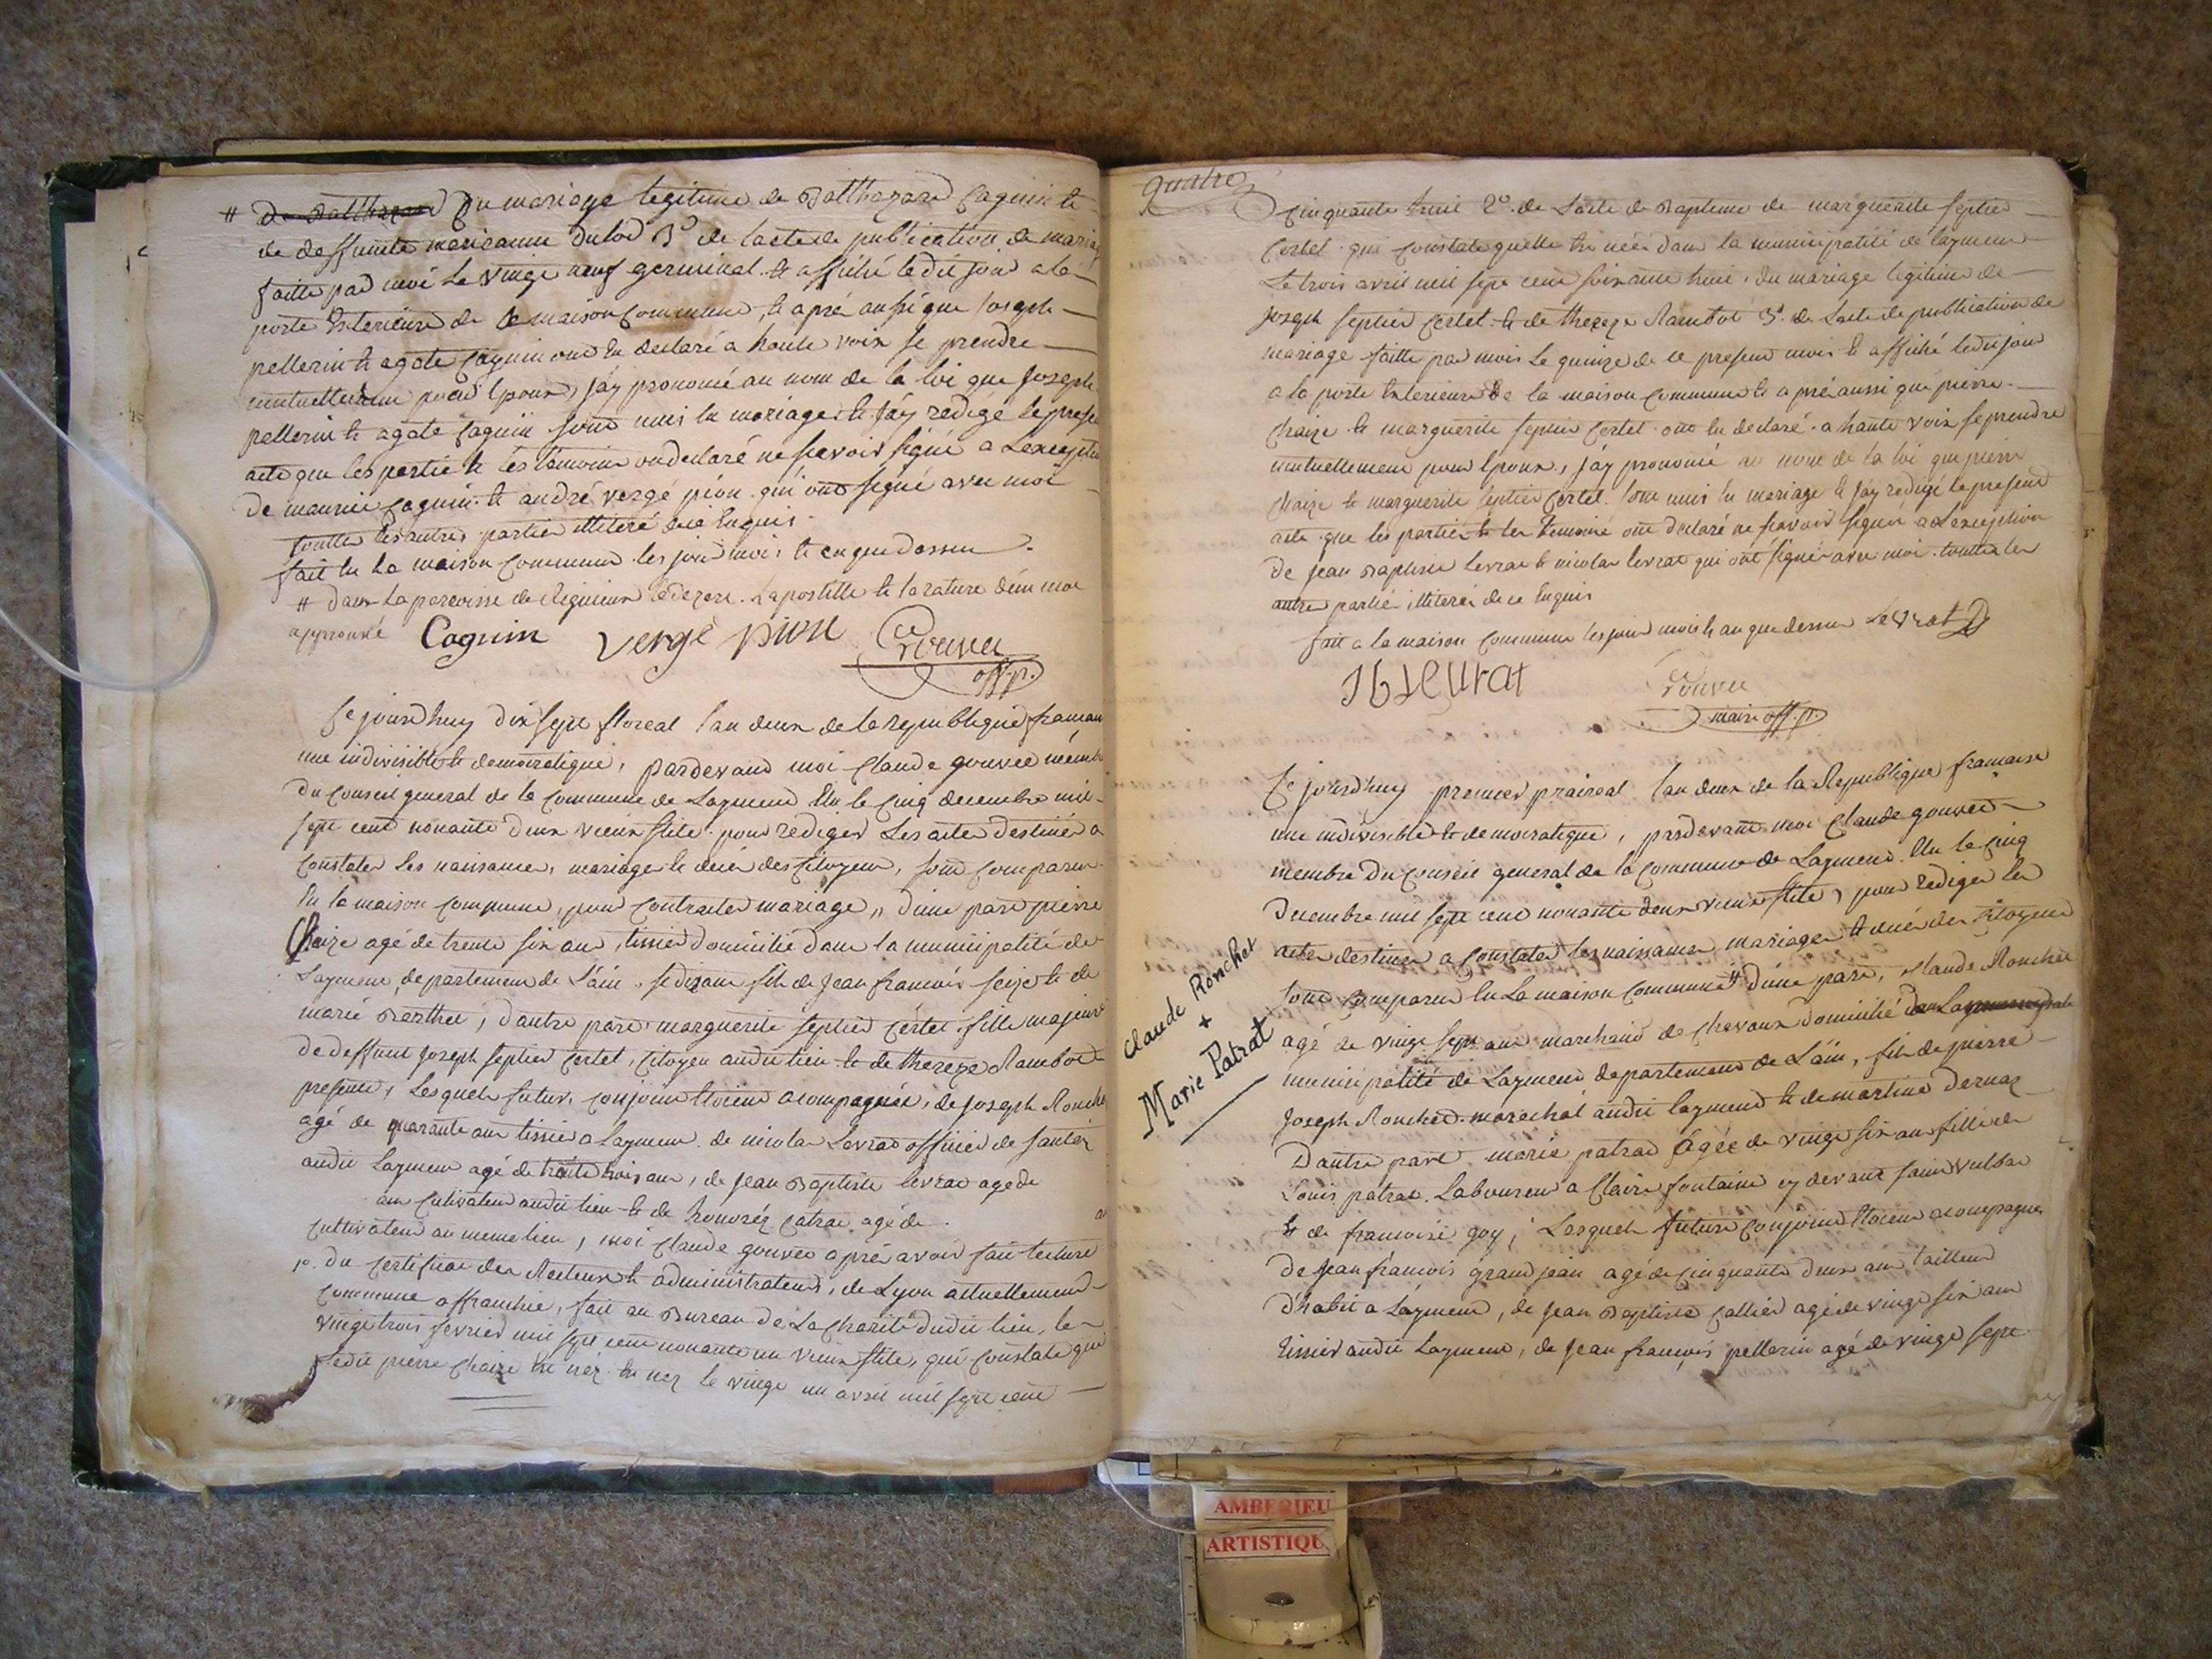 # De Balthazard Du mariage legitime de Balthazard Caguin et
de deffunte mericaume dutod 3º de lacte de publication de mariage
faitte par moi Le vingt neuf germinal et affiché ledit jour a la
porte Exterieure de la maison commune, et apré ausi que Joseph
pellerin et agate Caguin ont eu declaré a haute voix se prendre
mutuellement pour Epoux, J'áy prononcé au nom de la loi que Joseph
pellerin et agate Caguin sont unis en mariage et J'áy redigé le present
acte que les partie et les temoins on declaré ne scavoir signé a Lexception
de maurice Caguin et andré vergé pion qui ont signé avec moi
toutte les autres partie illiteré de ce Enquis
fait En La maison Commune les jour mois et an que dessu
# dans La paroisse de Rignieux ledezere. Lapostille et la rature d'un mot
approuvé Caguin vergé pion Gouvee
off. p.
Ce jourd'huy dix sept floreal l'an deux de la republique francaise
une indivisible et democratique, pardevand moi Claude gouvee membre
Du Conseil general de la Commune de Laymend Elu le Cinq decembre mil
sept cent nonante deux vieux stile pour rediger Les actes destinés a
Constater les naissances, mariage et decé des Citoyens, sont Comparus
En la maison commune, pour Contracter mariage, d'une part pierre
Chaize agé de trente six ans, tissier domicilié dans la municipalité de
Laymend, departement de L'áin, se disant fils de Jean francois seize et de
marie Barthet, d'autre part marguerite septier Certet fille majeure
De deffunt Joseph septier Certet, Citoyen audit lieu et de thereze Rambot
presente, Lesquels futurs conjoints Etoient acompagnés, de Joseph Ronchet
agé de quarante ans tissié a Laymend de nicolas Levrat officier de santéz
audit Laymend agé de trente trois ans, de Jean Baptiste levrat agé de
ans Cultivateur audit lieu et de honoréz Catrat agé de
Cultivateur au meme lieu, moi Claude gouvee apré avoir fait lecture
1º. du Certificat des Recteurs et administrateurs, de Lyon actuellement
Commune affranchie, fait au Bureau de La Charité dudit lieu, le
vingt trois fevrier mil sept cent nonante un vieux stile, qui Constate que
Ledit pierre Chaize Est néz Est nez le vingt un avril mil sept cent
quatre
Cinquante huit 2º. de Lacte de Bapteme de marguerite septier
Certet qui Constate quelle Est néé dans la municipalité de laymend
Le trois avril mil sept cent soixante huit, du mariage legitime de
Joseph septier Certet et de thereze Rambot 3º. de Lacte de publication de
mariage faitte par mois Le quinze de ce present mois et affiché ledit jour
a la porte Exterieure de la maison Commune et apré aussi que pierre
Chaize et marguerite septier Certet ont Eu declaré a haute voix se prendre
mutuellement pour Epoux, J'áy prononcé au nom de la loi que pierre
Chaize et marguerite septier Certet sont unis En mariage et J'áy redigé le present
acte que les partiés et les temoins ont declaré ne scavoir signer a Lexception
De Jean Baptiste Levrat et nicolas levrat qui ont signé avec moi toutte les
autre partié illiterés de ce Enquis
fait a la maison Commune les jour mois et an que dessu Levrat
JB Levrat Gouvee
maire off. p.
Claude Ronchet
+
Marie Patrat
Ce jourd'huy premier prairéal l'an deux de la Republique francaise
une indivisible et democratique, pardevant moi Claude gouvee
membre Du Conseil general de la Commune de Laymend Elu le Cinq
Decembre mil sept cent nonante deux vieux stile, pour rediger les
actes destinés a Constater les naissances mariages et decés des Citoyens
sont Comparus En La maison Commune # d'une part, Claude Ronchet
agé de vingt sept ans marchand de chevaux domicilié
municipalité de Laymend departement de L'áin, fils de pierre
Joseph Ronchet marechal audit laymend et de martine Dernaz
D'autre part marie patrat agée de vingt six ans fille de
Louis patrat Laboureur a Claire fontaine cy devant saint vulbas
et de francoise goy, Lesquels futurs conjoints Etoient acompagnes
De Jean francois grand jean agé de Cinquante deux ans tailleur
d'habit a Laymend, de Jean Baptiste Callier agé de vingt six ans
tissier audit Laymend, de Jean françois pellerin agé de vingt sept
AMBERIEU
ARTISTIQU